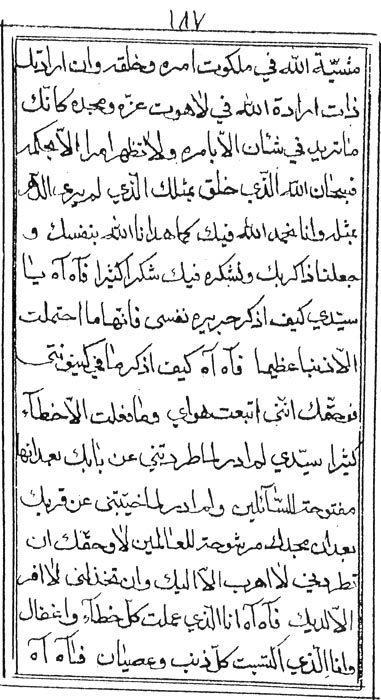 ١٨٧
مشيّة الله في ملكوت امره وخلقه وان ارادتك
ذات ارادة الله في لاهوت عزّه ومجده كانّك
ماتريد في شأن الّا بامره ولا تظهر امرا الّا بحكمه
فسبحان الله الّذي خلق بمثلك الّذي لم ير عين الدّهر
بمثله وانا نحمد الله فيك كما هدانا الله بنفسك و
جعلنا ذاكر بك ونشكره فيك شكرا كثيرا فآه آه يا
سيّدي كيف اذكر جريره نفسي فانّها ما احتملت
الّا ذنبا عظيما فآه آه كيف اذكر ما في كينونتي
فوحقّك انّني اتبعت هواي وما فعلت الّا خطآء
كثيرا سيّدي لم ادر لما طردتني عن بابك بعد انّها
مفتوحة للسّآئلين ولم ادر لما خيّبتني عن قربك
بعد ان مجدك مرشوحة للعالمين لا وحقّك ان
تطردني لا اهرب الّا اليك وان تخذلني لا افر
الّا لديك فآه آه انا الّذي عملت كلّ خطآء واغفال
وانا الّذي اكتسبت كلّ ذنب وعصيان فآه آه